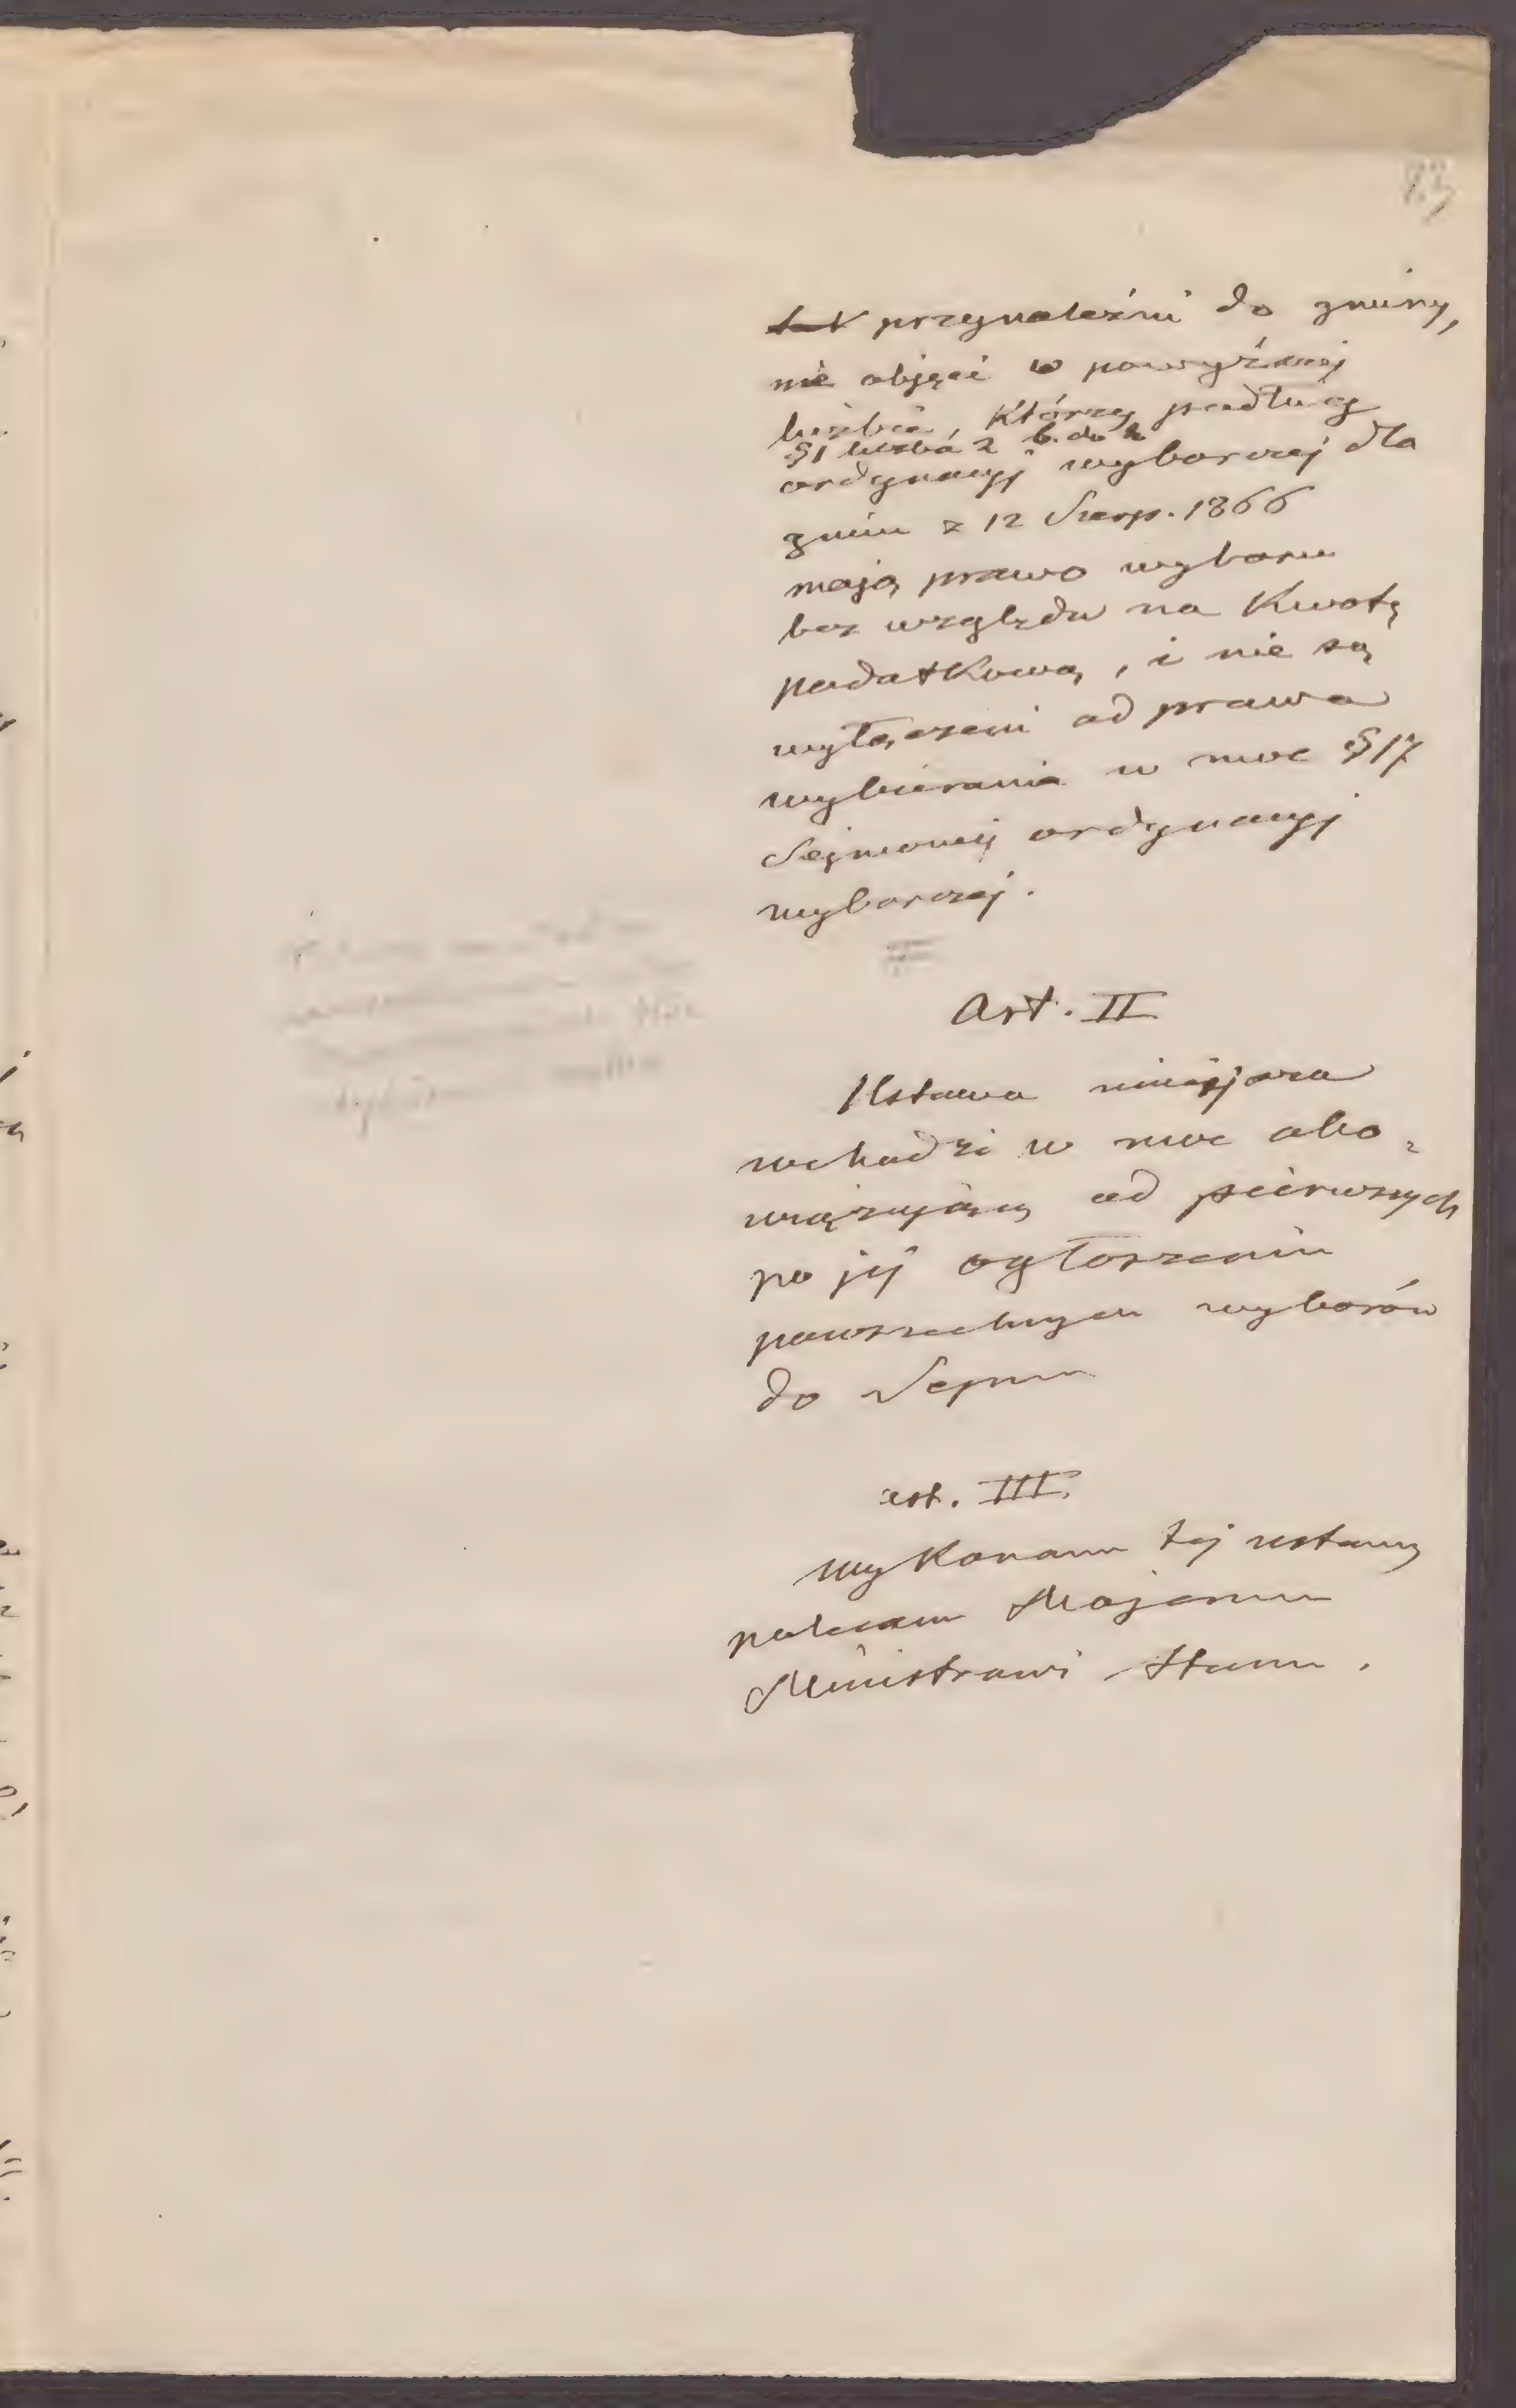 przynależni do gminy,
nie objęci w powyższej
liczbie, którzy podług
§1 liczba 2 b. do h
ordynacyj wyborczej dla
gmin z 12 Sierp. 1866
mają prawo wyboru
bez względu na Kwotę
podatkową, i nie są
wyłączeni od prawa
wybierania w moc §17
Sejmowej ordynacyj
wyborczej.
Art. II
Ustawa niniejsza
wchodzi w moc obo-
wiązującą od pierwszych
po jej ogłoszeniu
powszechnych wyborów
do Sejmu
art. III.
Wykonanie tej ustawy
polecam Mojemu
Ministrowi Stanu.